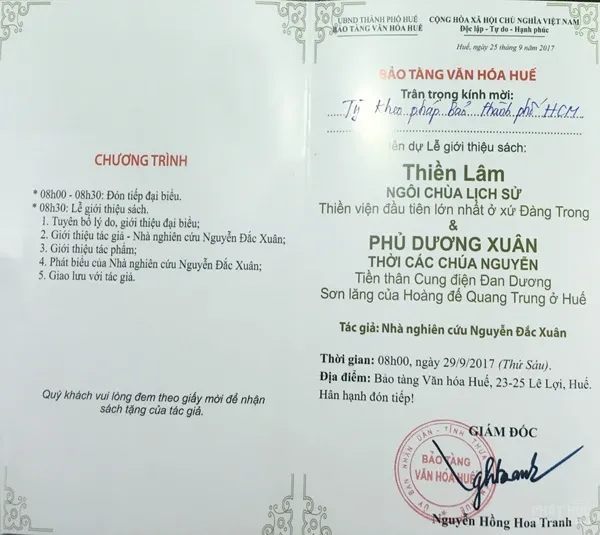 CHƯƠNG TRÌNH
* 08h00 - 08h30: Đón tiếp đại biểu.
* 08h30: Lễ giới thiệu sách.
1. Tuyên bố lý do, giới thiệu đại biểu;
2. Giới thiệu tác giả - Nhà nghiên cứu Nguyễn Đắc Xuân;
3. Giới thiệu tác phẩm;
4. Phát biểu của Nhà nghiên cứu Nguyễn Đắc Xuân;
5. Giao lưu với tác giả.
Quý khách vui lòng đem theo giấy mời để nhận
sách tặng của tác giả.
UBND THÀNH PHỐ HUẾ
BẢO TÀNG VĂN HÓA HUẾ
CỘNG HÒA XÃ HỘI CHỦ NGHĨA VIỆT NAM
Độc lập - Tự do - Hạnh phúc
Huế, ngày 25 tháng 9 năm 2017
BẢO TÀNG VĂN HÓA HUẾ
Trân trọng kính mời:
Tỳ kheo pháp Bảo thành phố HCM
dự Lễ giới thiệu sách:
Thiền Lâm
NGÔI CHÙA LỊCH SỬ
Thiền viện đầu tiên lớn nhất ở xứ Đàng Trong
&
PHỦ DƯƠNG XUÂN
THỜI CÁC CHÚA NGUYỄN
Tiền thân Cung điện Đan Dương
Sơn lăng của Hoàng đế Quang Trung ở Huế
Tác giả: Nhà nghiên cứu Nguyễn Đắc Xuân
Thời gian: 08h00, ngày 29/9/2017 (Thứ Sáu).
Địa điểm: Bảo tàng Văn hóa Huế, 23-25 Lê Lợi, Huế.
Hân hạnh đón tiếp!
GIÁM ĐỐC
BẢO TÀNG
VĂN HÓA HUẾ
Nguyễn Hồng Hoa Tranh